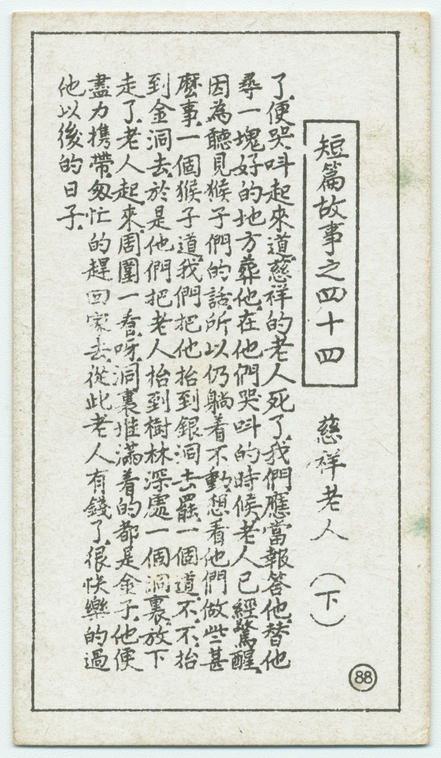 短篇故事之四十四
慈祥老人（下）
了,便哭叫起來道:慈祥的老人死了,我們應當報答他,替他
尋一塊好的地方葬他,在他們哭叫的時候,老人已經驚醒,
因為聽見猴子們的話,所以仍躺着不動,想看他們做些甚
麼事,一個猴子道,我們把他抬到銀洞去罷,一個道,不不,抬
到金洞去,於是他們把老人抬到樹林深處一個洞裏,放下
走了,老人起來周圍一看,呀,洞裏堆滿着的都是金子,他便
盡力携帶,匆忙的趕回家去,從此老人有錢了,很快樂的過
他以後的日子.
88